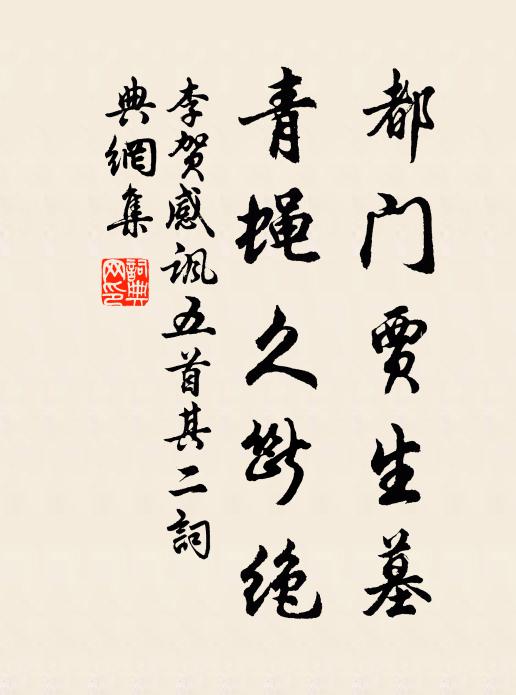 都门贾生墓
青蝇久断绝
李贺感讽五首其二詞
典網集
詞典网印